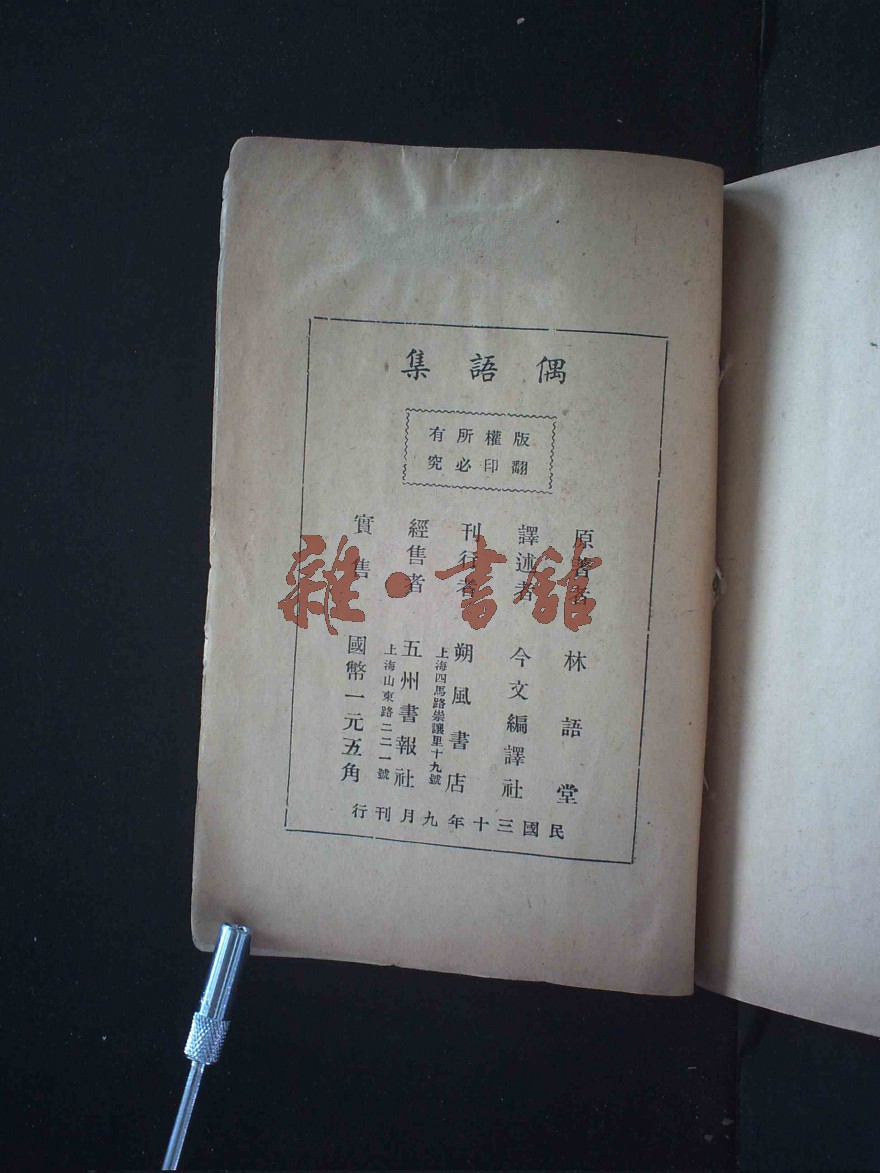 偶語集
版權所有
翻印必究
原著者 林語堂
譯述者 今文編譯社
刊行者 朔風書店
上海四馬路崇讓里十九號
經售者 五州書報社
上海山東路二二一號
實售 國幣一元五角
民國三十年九月刊行
雜·書館